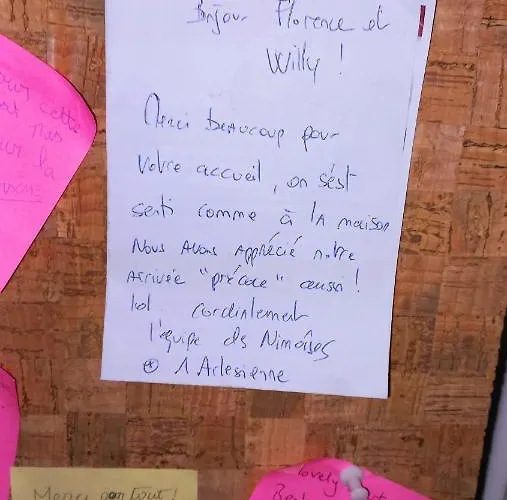 Bnjour Florence et
Willy !
Merci beaucoup pour
votre accueil, on s'est
senti comme à la maison
Nous avons apprécié notre
arrivée "précoce" aussi !
lol cordialement
l'équipe des Nimoîses
⊛ 1 Arlesienne
cette
pas
sur la
Merci pour tout !
lovely